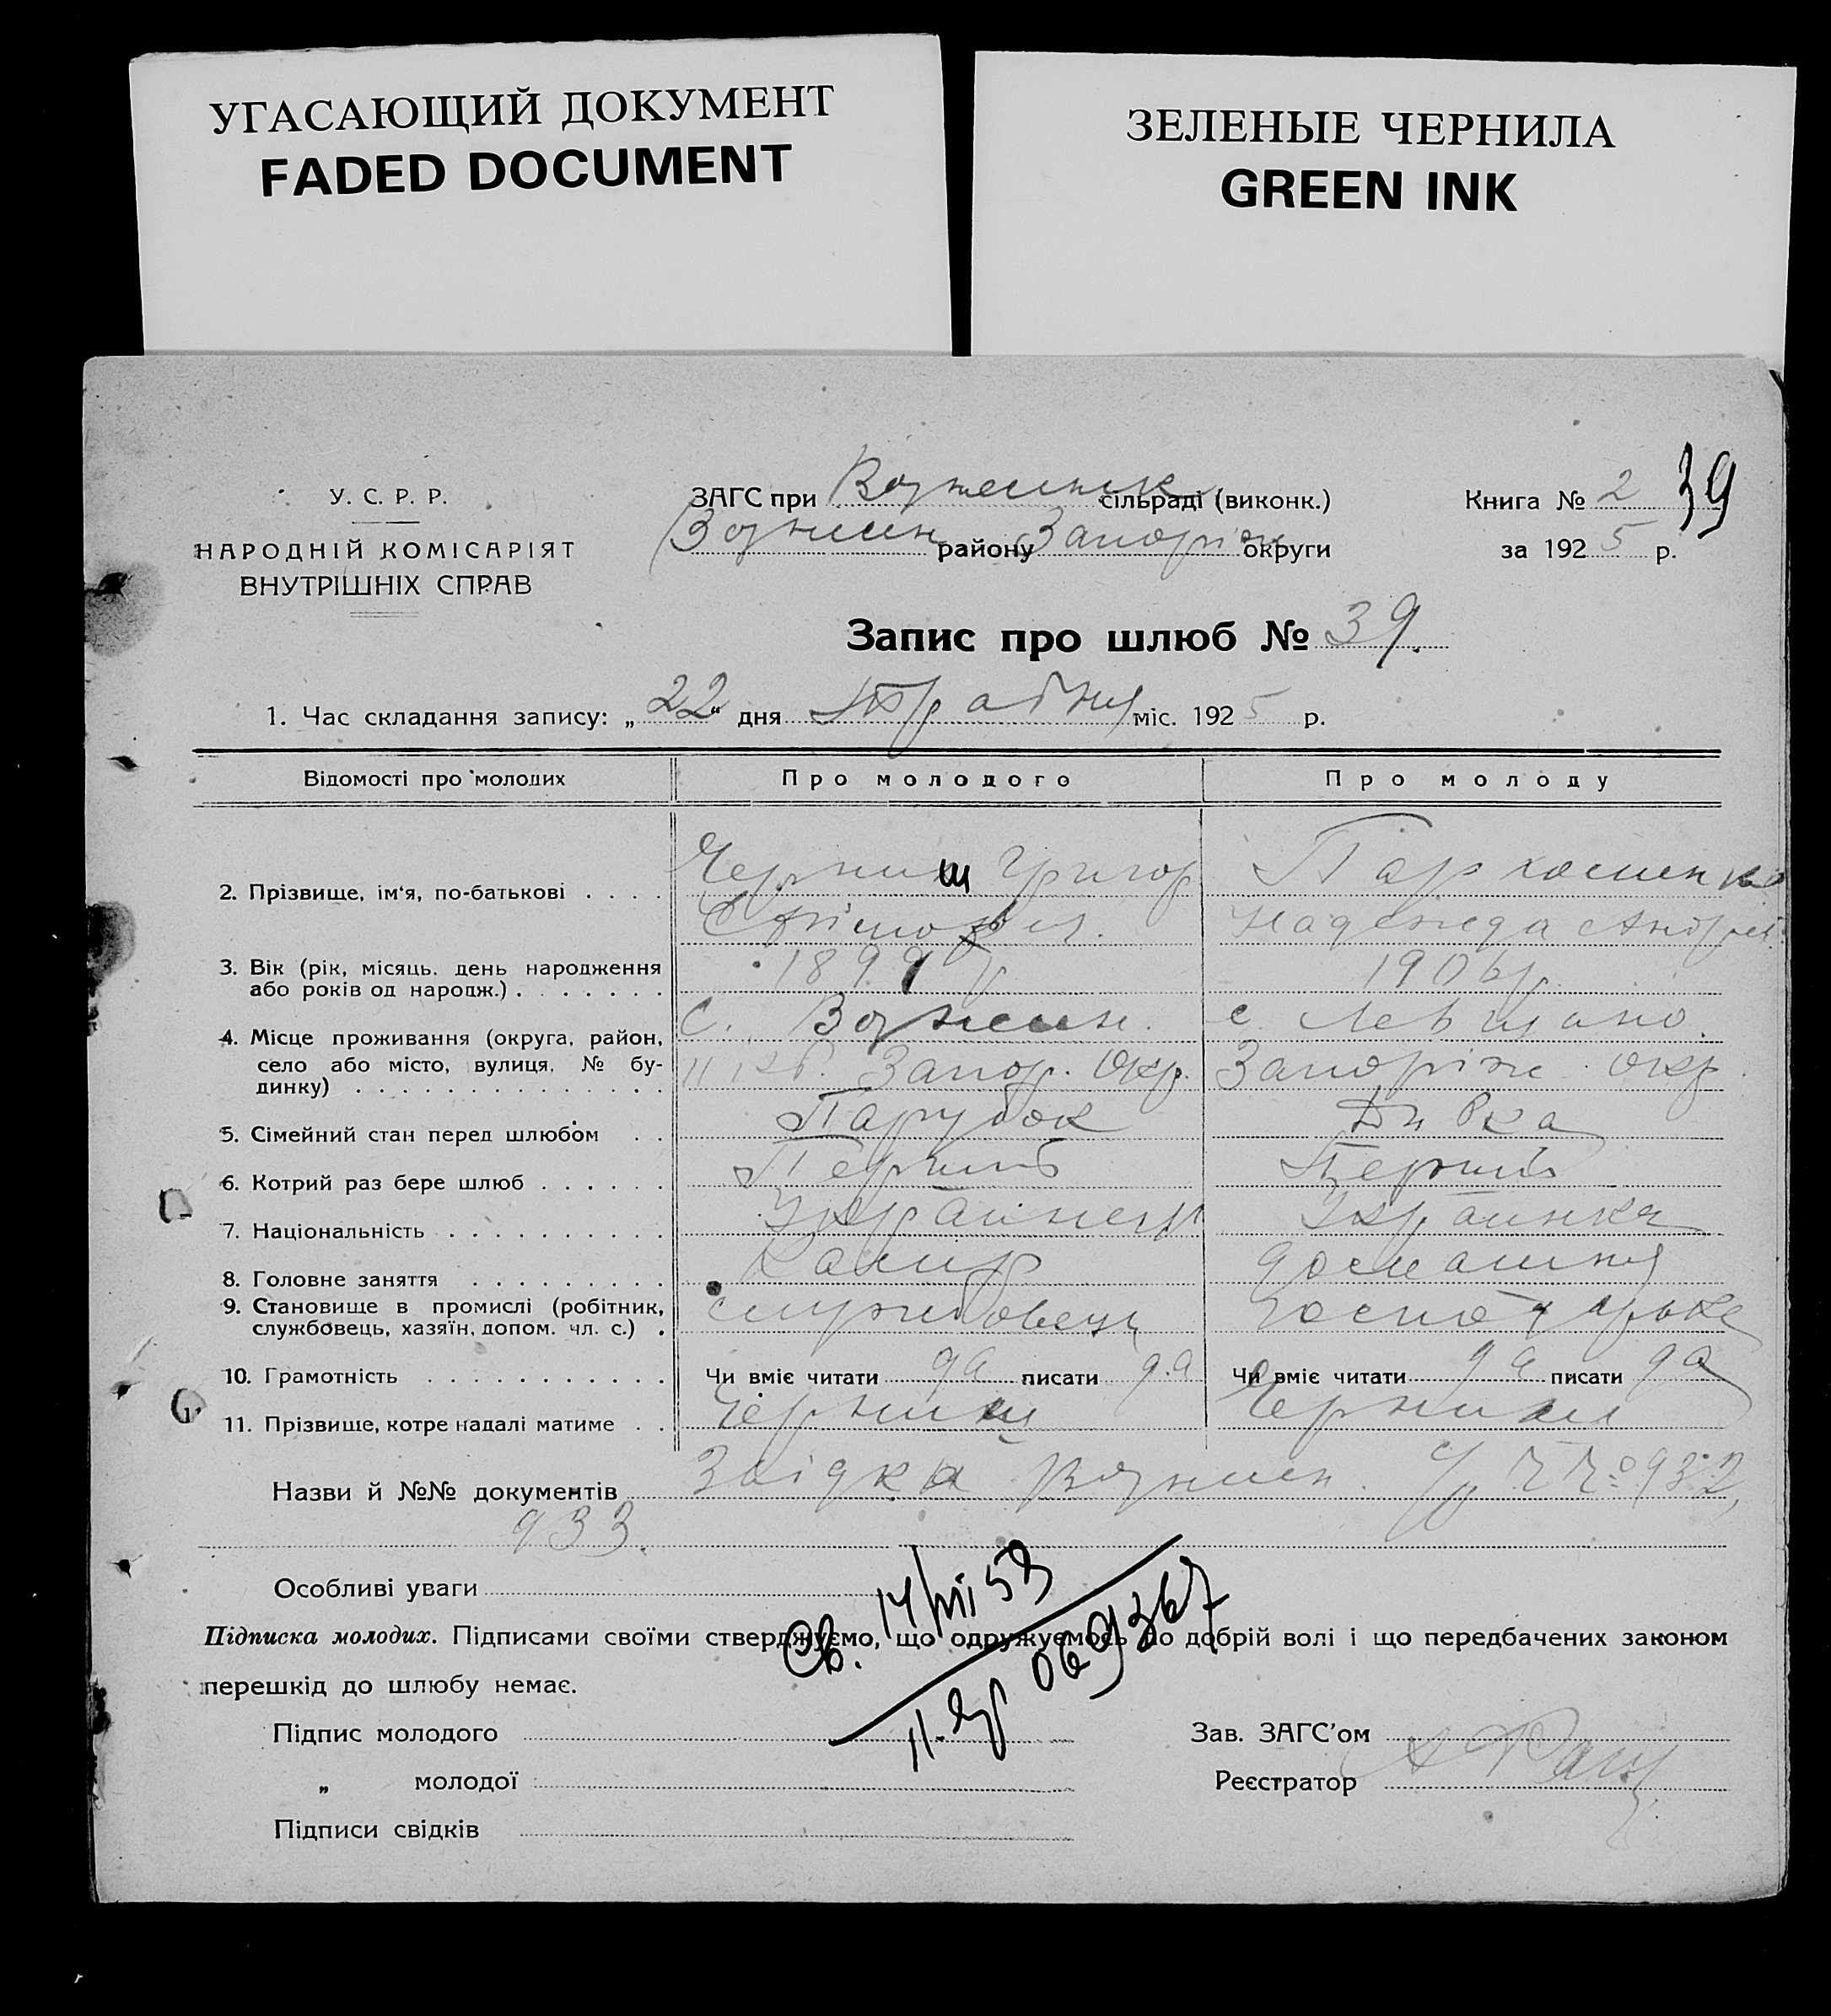 УГАСАЮЩИЙ ДОКУМЕНТ
FADED DOCUMENT
ЗЕЛЕНЫЕ ЧЕРНИЛА
GREEN INK
У. С. Р. Р.
НАРОДНІЙ КОМІСАРІЯТ
ВНУТРІШНІХ СПРАВ
ЗАГС при сільраді (виконк.)
району Запоріж округи
Книга № 2 39
за 1925 р.
Запис про шлюб № 39.
1. Час складання запису: „22“ дня Травня міс. 1925 р.
Відомості про молодих Про молодого Про молоду
2. Прізвище, ім‘я, по-батькові . . . . Черниш Григор Пархоменко
Надежда Андрій.
3. Вік (рік, місяць, день народження 1899 р 1906 р.
або років од народж.) . . . . . . .
4. Місце проживання (округа, район, с. Вознесен. с.
село або місто, вулиця, № бу- Запор. Окр. Запоріж. окр.
динку) . . . . . . . . . . . . . .
5. Сімейний стан перед шлюбом . . Парубок Дивка
6. Котрий раз бере шлюб . . . . . . Перший Перший
7. Національність . . . . . . . . . . Українець Українка
8. Головне заняття . . . . . . . . . Касир домашня
9. Становище в промислі (робітник, службовець господарька
службовець, хазяїн, допом. чл. с.) .
10. Грамотність . . . . . . . . . . . Чи вміє читати да писати да Чи вміє читати да писати да
11. Прізвище, котре надалі матиме . . Черниш Черниш
Назви й №№ документів Звідка Вознесен. с/р № 932,
933.
Особливі уваги
Св. 14/VII 53
069367
Підписка молодих. Підписами своїми стверджуємо, що одружуємось по добрій волі і що передбачених законом
перешкід до шлюбу немає.
Підпис молодого Зав. ЗАГС’ом
„ молодої Реєстратор
Підписи свідків